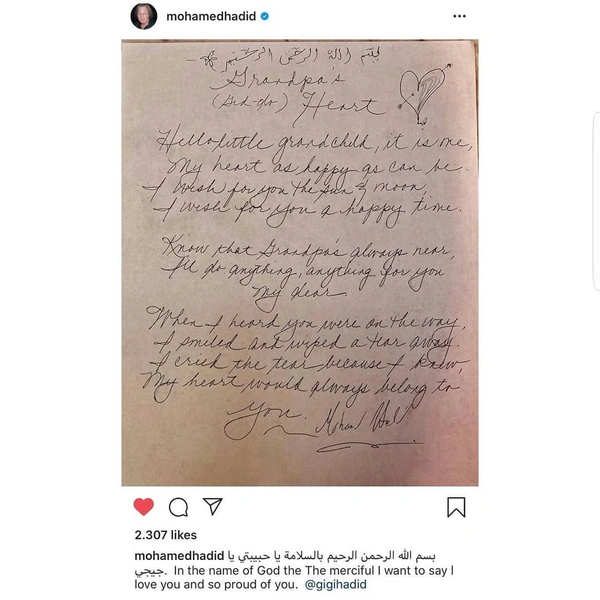 mohamedhadid
بسم الله الرحمن الرحيم
Grandpa's
(Gid-do) Heart
Hello little grandchild, it is me,
My heart as happy as can be.
I wish for you the sun & moon,
I wish for you a happy time.
Know that Grandpa's always near,
I'll do anything, anything for you
my dear.
When I heard you were on the way,
I smiled and wiped a tear away.
I cried the tear because I knew,
My heart would always belong to
you.
2.307 likes
mohamedhadid بسم الله الرحمن الرحيم بالسلامة يا حبيبتي يا
جيجي. In the name of God the The merciful I want to say I
love you and so proud of you. @gigihadid